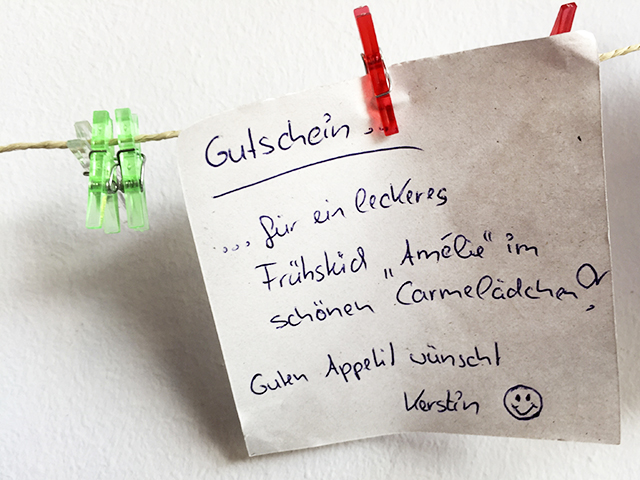 Gutschein...
... für ein leckeres
Frühstück "Amélie" im
schönen Carmelädchen!
Guten Appetit wünscht
Kerstin